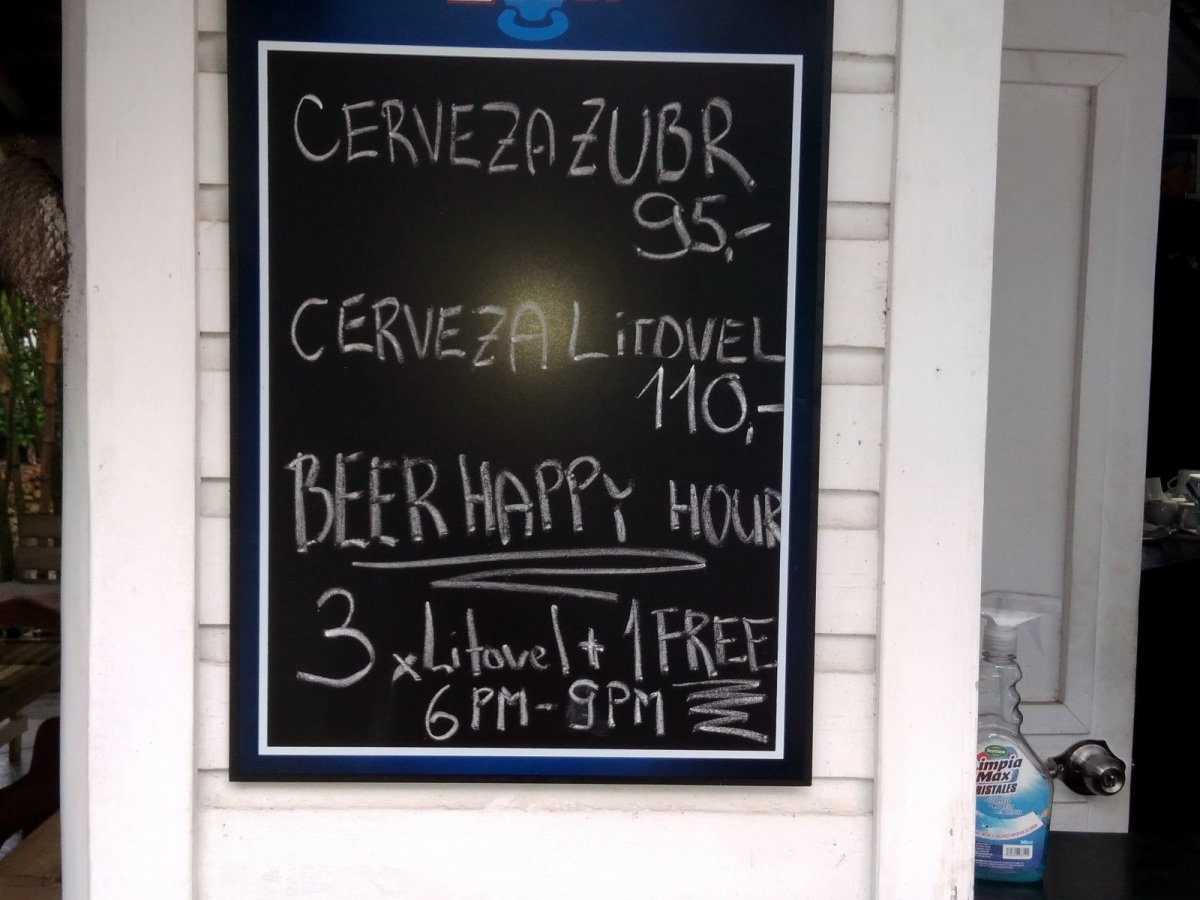 CERVEZA ZUBR
95,-
CERVEZA LiTOVEL
110,-
BEER HAPPY HOUR
3 x Litovel + 1 FREE
6 PM - 9 PM
impia
Max
RISTALES